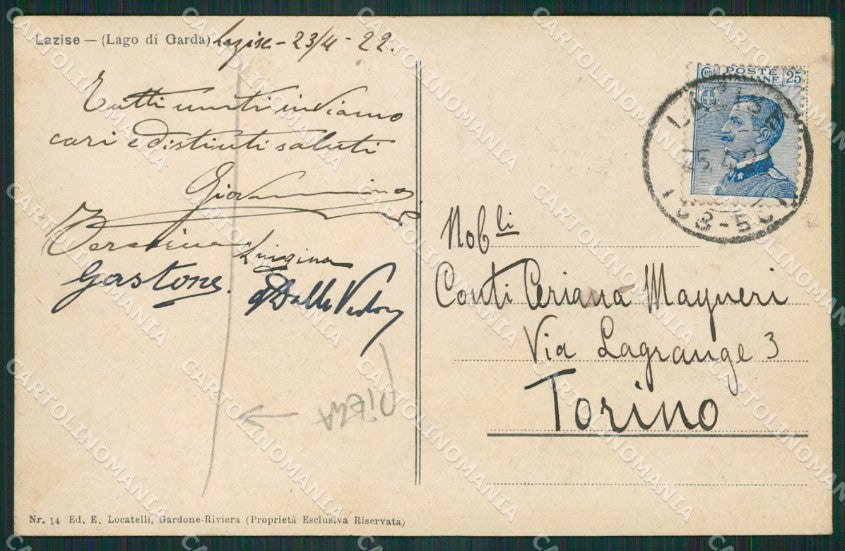 Lazise — (Lago di Garda) Lazise - 23/4 - 22.
Tutti uniti inviamo
cari e distinti saluti
Giovannina
Luigina
Gastone.
POSTE
ITALIANE 25
LAZISE
Nob.li
Conti Ceriana Mayneri
Via Lagrange 3
Torino
Nr. 14 Ed. E. Locatelli, Gardone-Riviera (Proprietà Esclusiva Riservata)
CARTOLINOMANIA